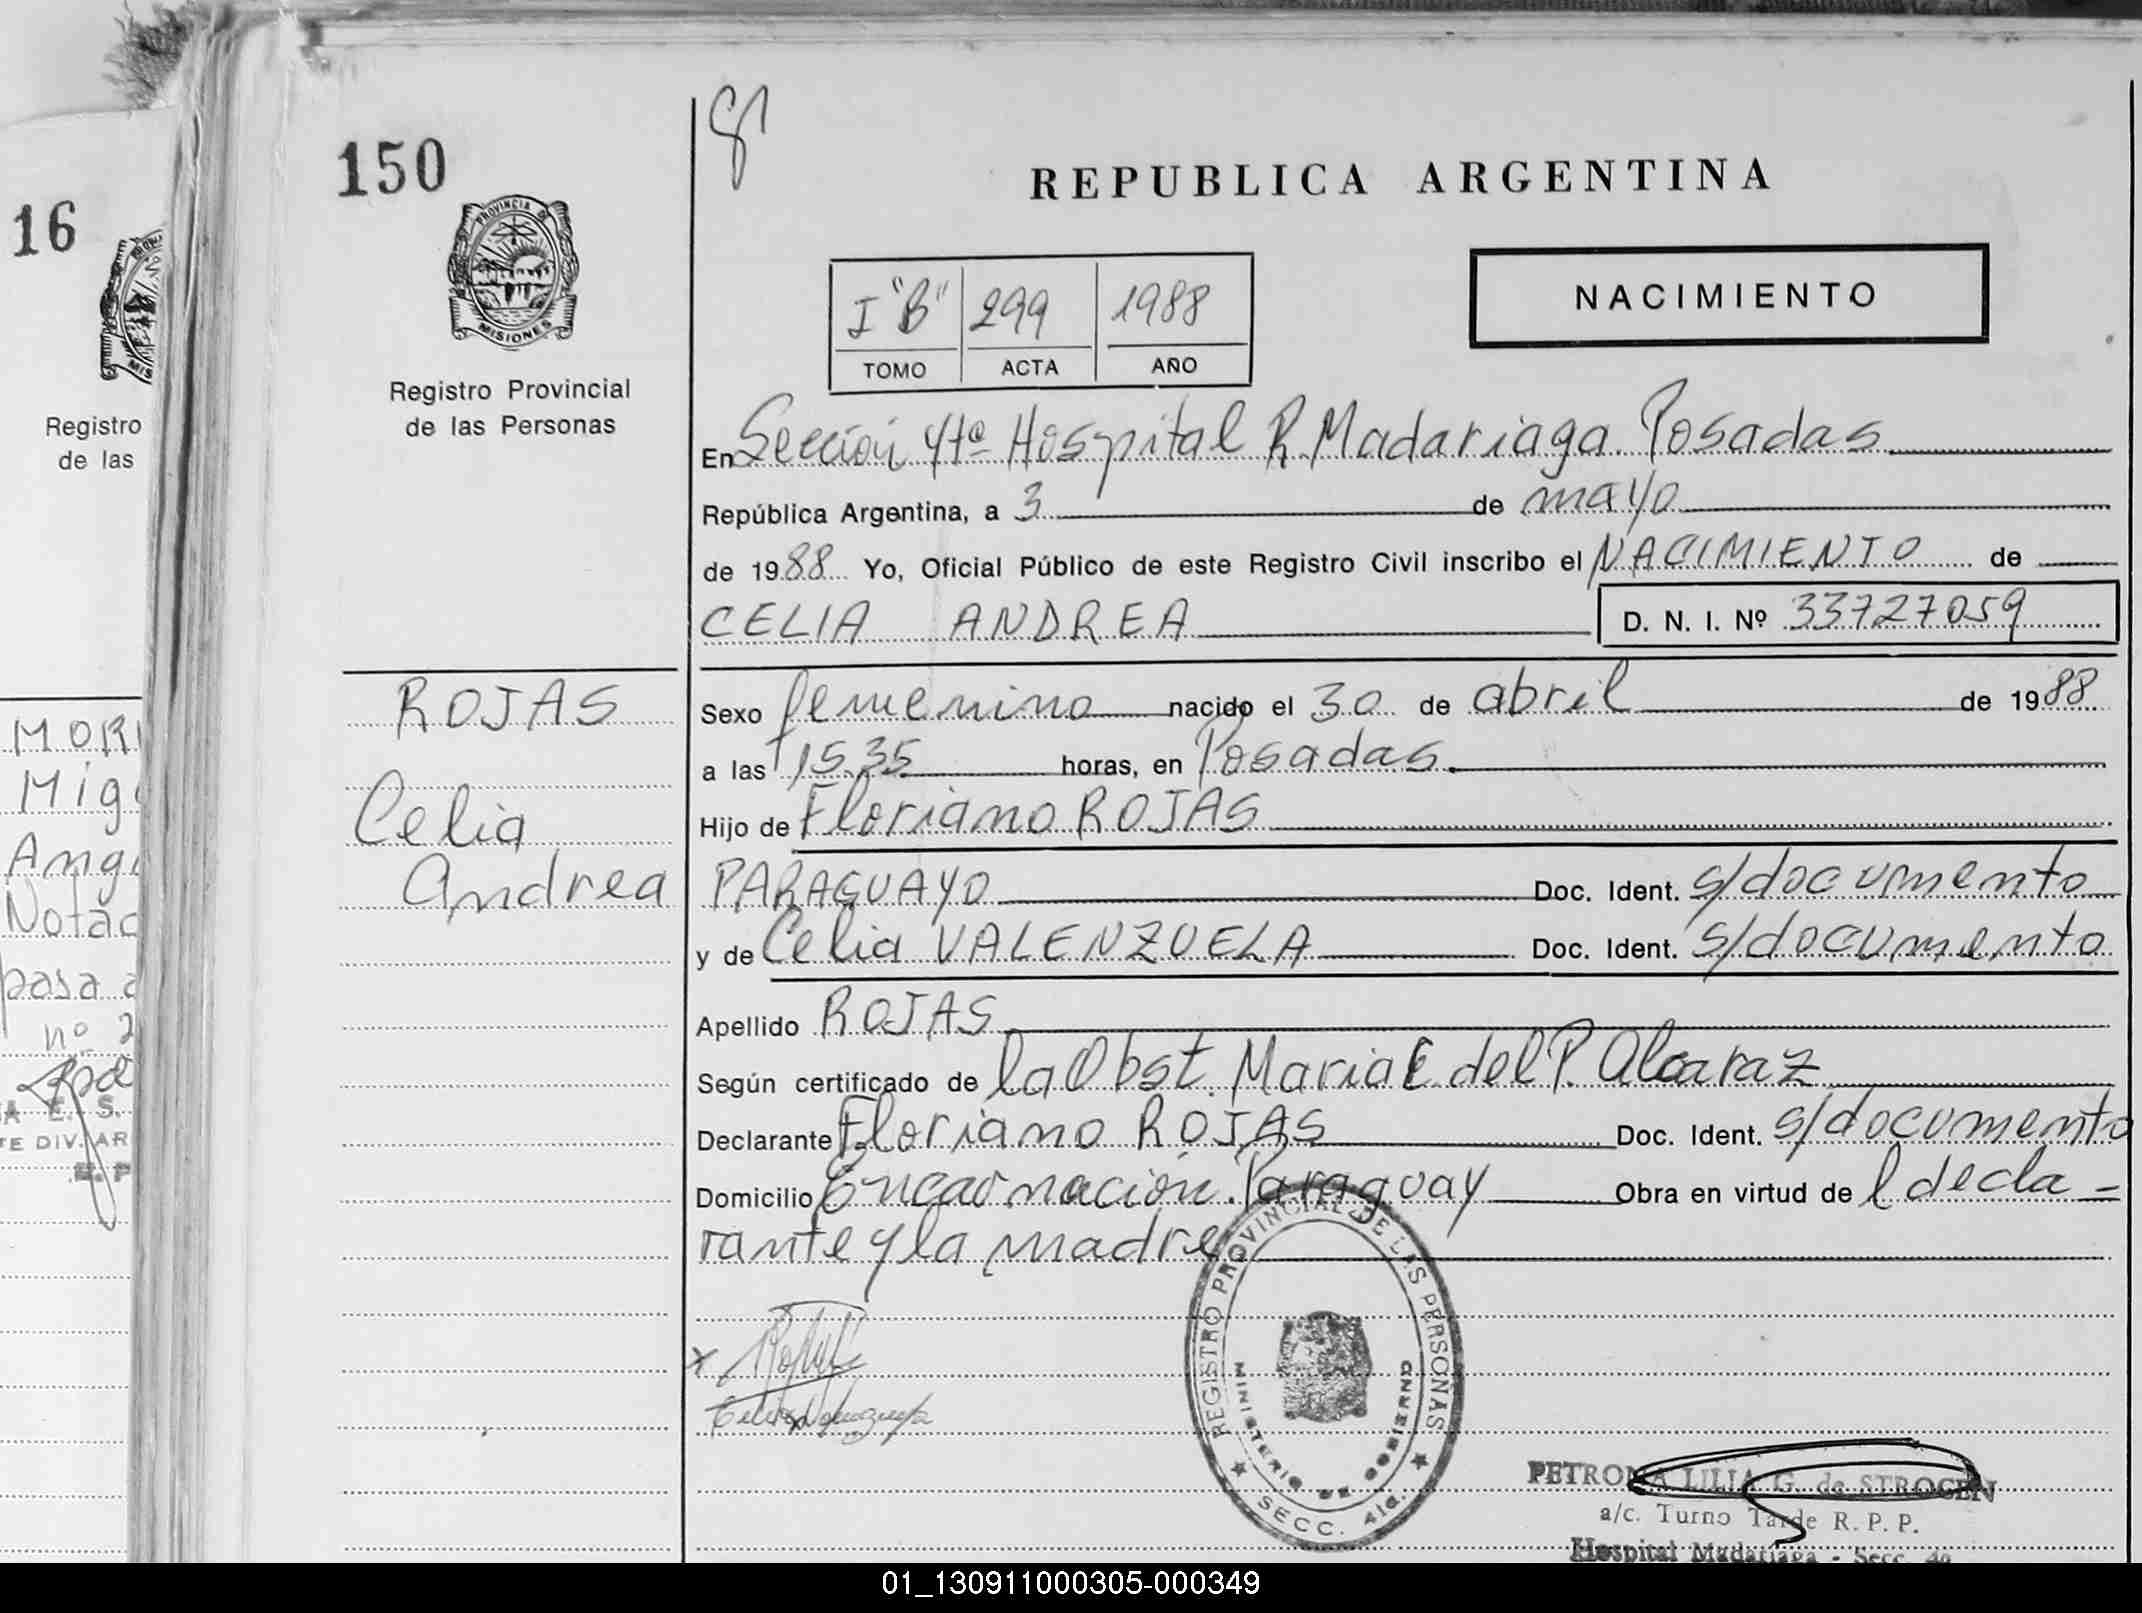 150
PROVINCIA DE
MISIONES
Registro Provincial
de las Personas
ROJAS
Celia
Andrea
REPUBLICA ARGENTINA
I "B" 299 1988
TOMO ACTA AÑO
NACIMIENTO
En Sección 4ta Hospital R. Madariaga. Posadas
República Argentina, a 3 de mayo
de 1988 Yo, Oficial Público de este Registro Civil inscribo el NACIMIENTO de
CELIA ANDREA D. N. I. Nº 33727059
Sexo femenino nacido el 30 de abril de 1988
a las 15.35 horas, en Posadas.
Hijo de Floriano ROJAS
PARAGUAYO Doc. Ident. s/documento
y de Celia VALENZUELA Doc. Ident. s/documento
Apellido ROJAS
Según certificado de la Obst. Maria C del P. Alcaraz
Declarante Floriano ROJAS Doc. Ident. s/documento
Domicilio Encarnación. Paraguay Obra en virtud de l decla-
rante y la madre
REGISTRO PROVINCIAL DE LAS PERSONAS
MINISTERIO DE GOBIERNO
SECC. 4ta.
PETRONA LILIA G. de STROGEN
a/c. Turno Tarde R. P. P.
Hospital Madariaga - Secc. 4a
16
MIS
Registro
de las
MOR
Mig
Ang
Notac
pasa a
nº 2
E. S.
TE DIV. AR
R. P
01_130911000305-000349